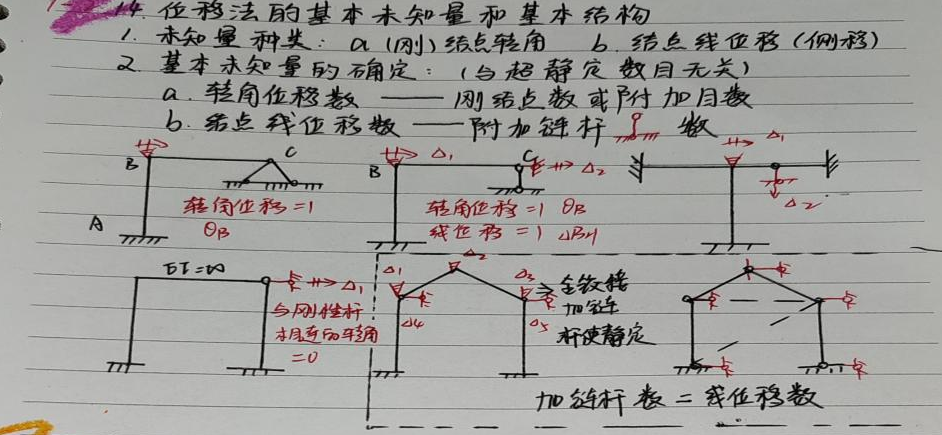 14. 位移法的基本未知量和基本结构
1. 未知量种类: a (刚)结点转角 b. 结点线位移(侧移)
2. 基本未知量的确定: (与超静定数目无关)
a. 转角位移数 —— 刚结点数或附加刚臂数
b. 结点线位移数 —— 附加链杆 数
B C
A
转角位移=1
θB
B Δ1 C Δ2
转角位移=1 θB
线位移=1 ΔBH
Δ1
Δ2
EI=∞ Δ1
与刚性杆
相连的转角
=0
Δ1 Δ2 Δ3
Δ4 Δ5
全铰接
加链
杆使静定
加链杆数=线位移数